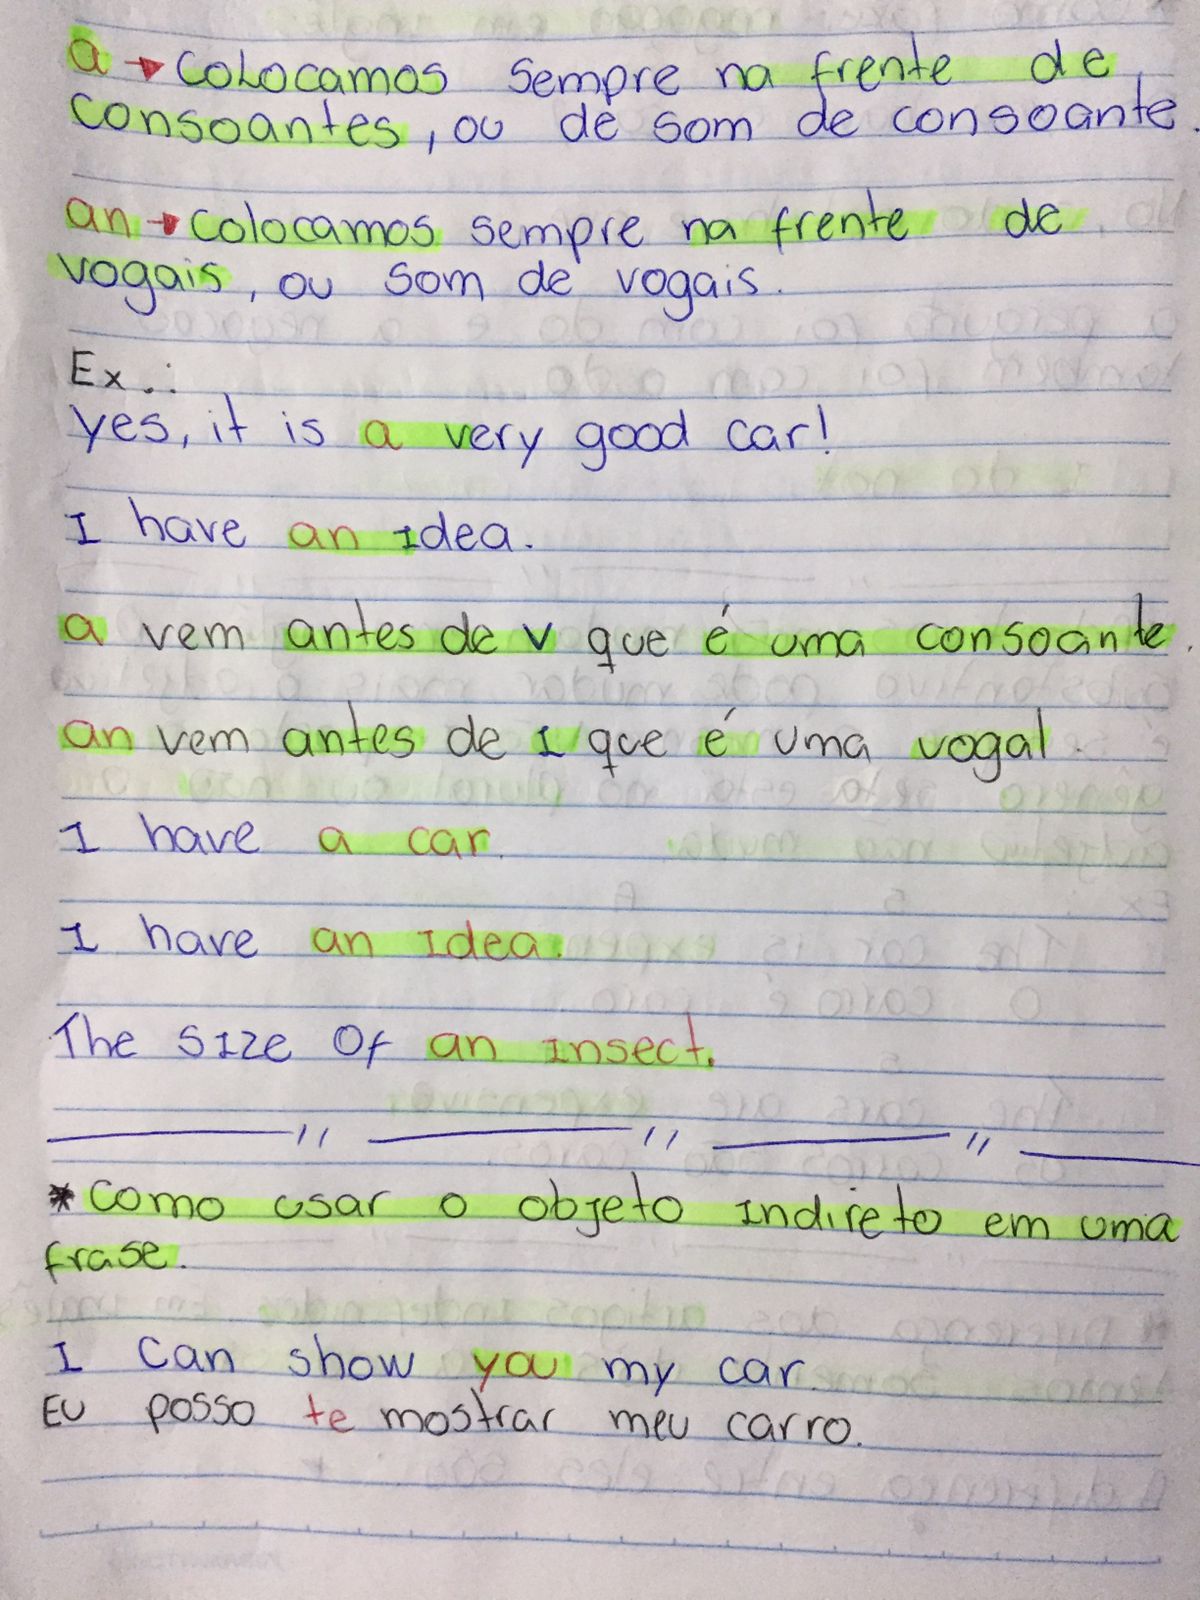 a → colocamos sempre na frente de
consoantes, ou de som de consoante.
an → colocamos sempre na frente de
vogais, ou som de vogais.
Ex.:
yes, it is a very good car!
I have an idea.
a vem antes de v que é uma consoante.
an vem antes de I que é uma vogal.
I have a car.
I have an Idea.
The size of an insect.
* como usar o objeto indireto em uma
frase.
I can show you my car.
Eu posso te mostrar meu carro.